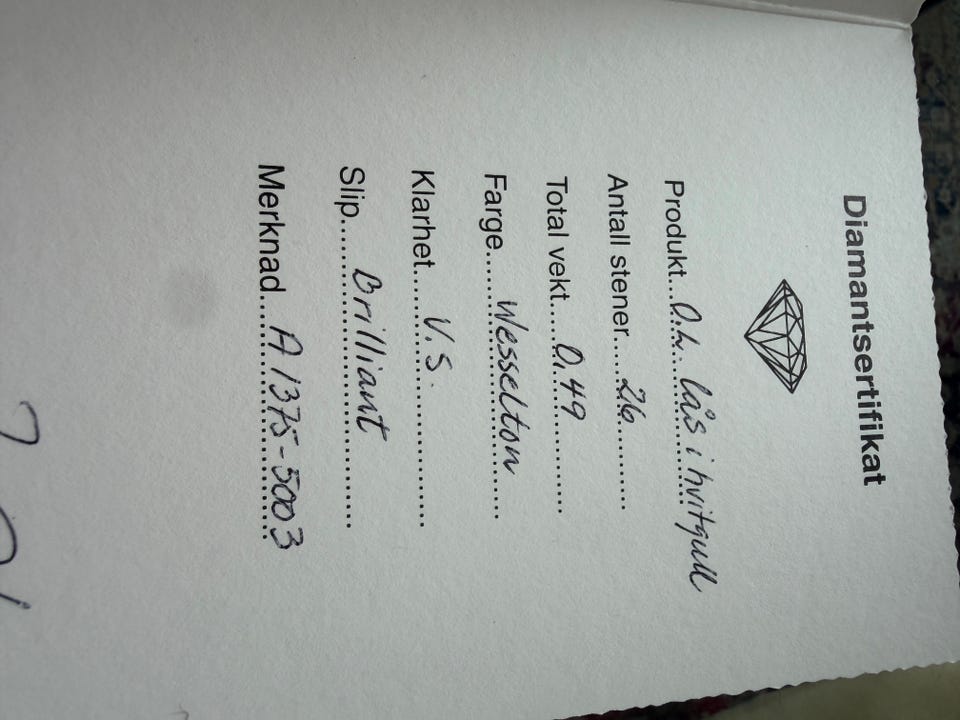 Diamantsertifikat
Produkt...O.L. lås i hvitgull
Antall stener......26.........
Total vekt.....0,49............
Farge.....Wesselton......
Klarhet.....V.S...............
Slip......Brilliant............
Merknad...A1375-5003